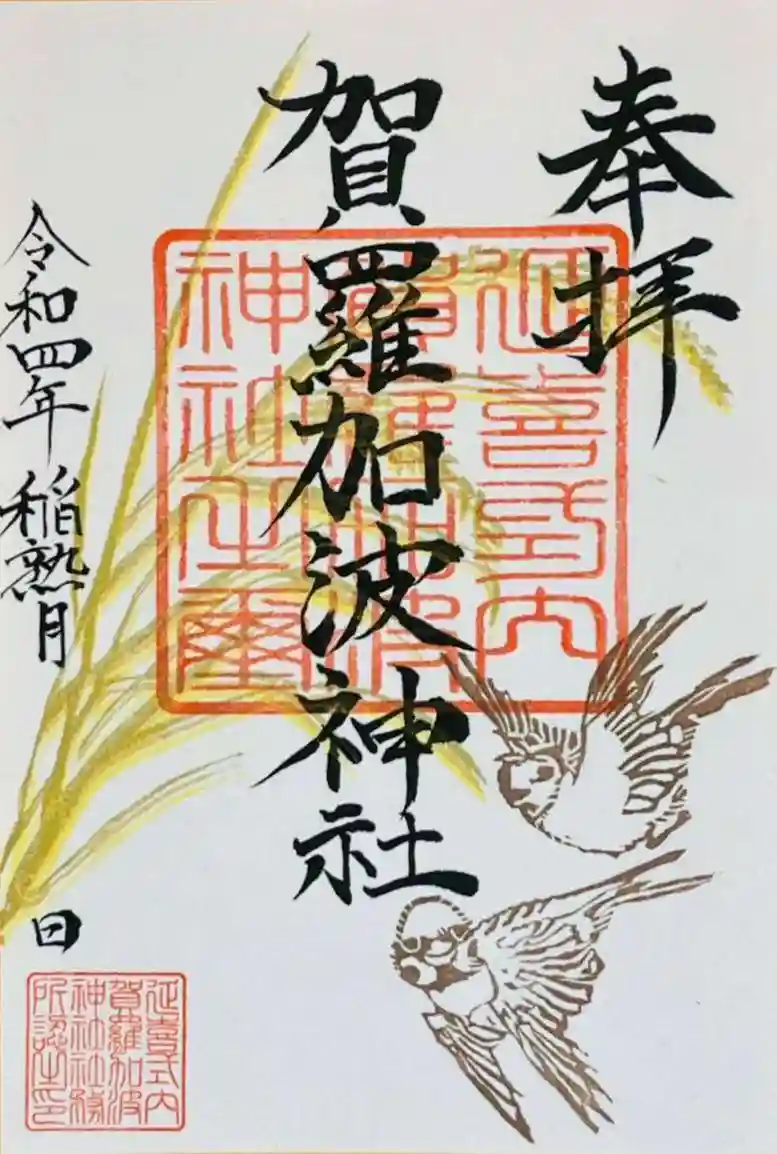 奉拝
賀羅加波神社
延喜式内
賀羅加波
神社之璽
令和四年 稲熟月 日
延喜式内
賀羅加波
神社社務
所認之印